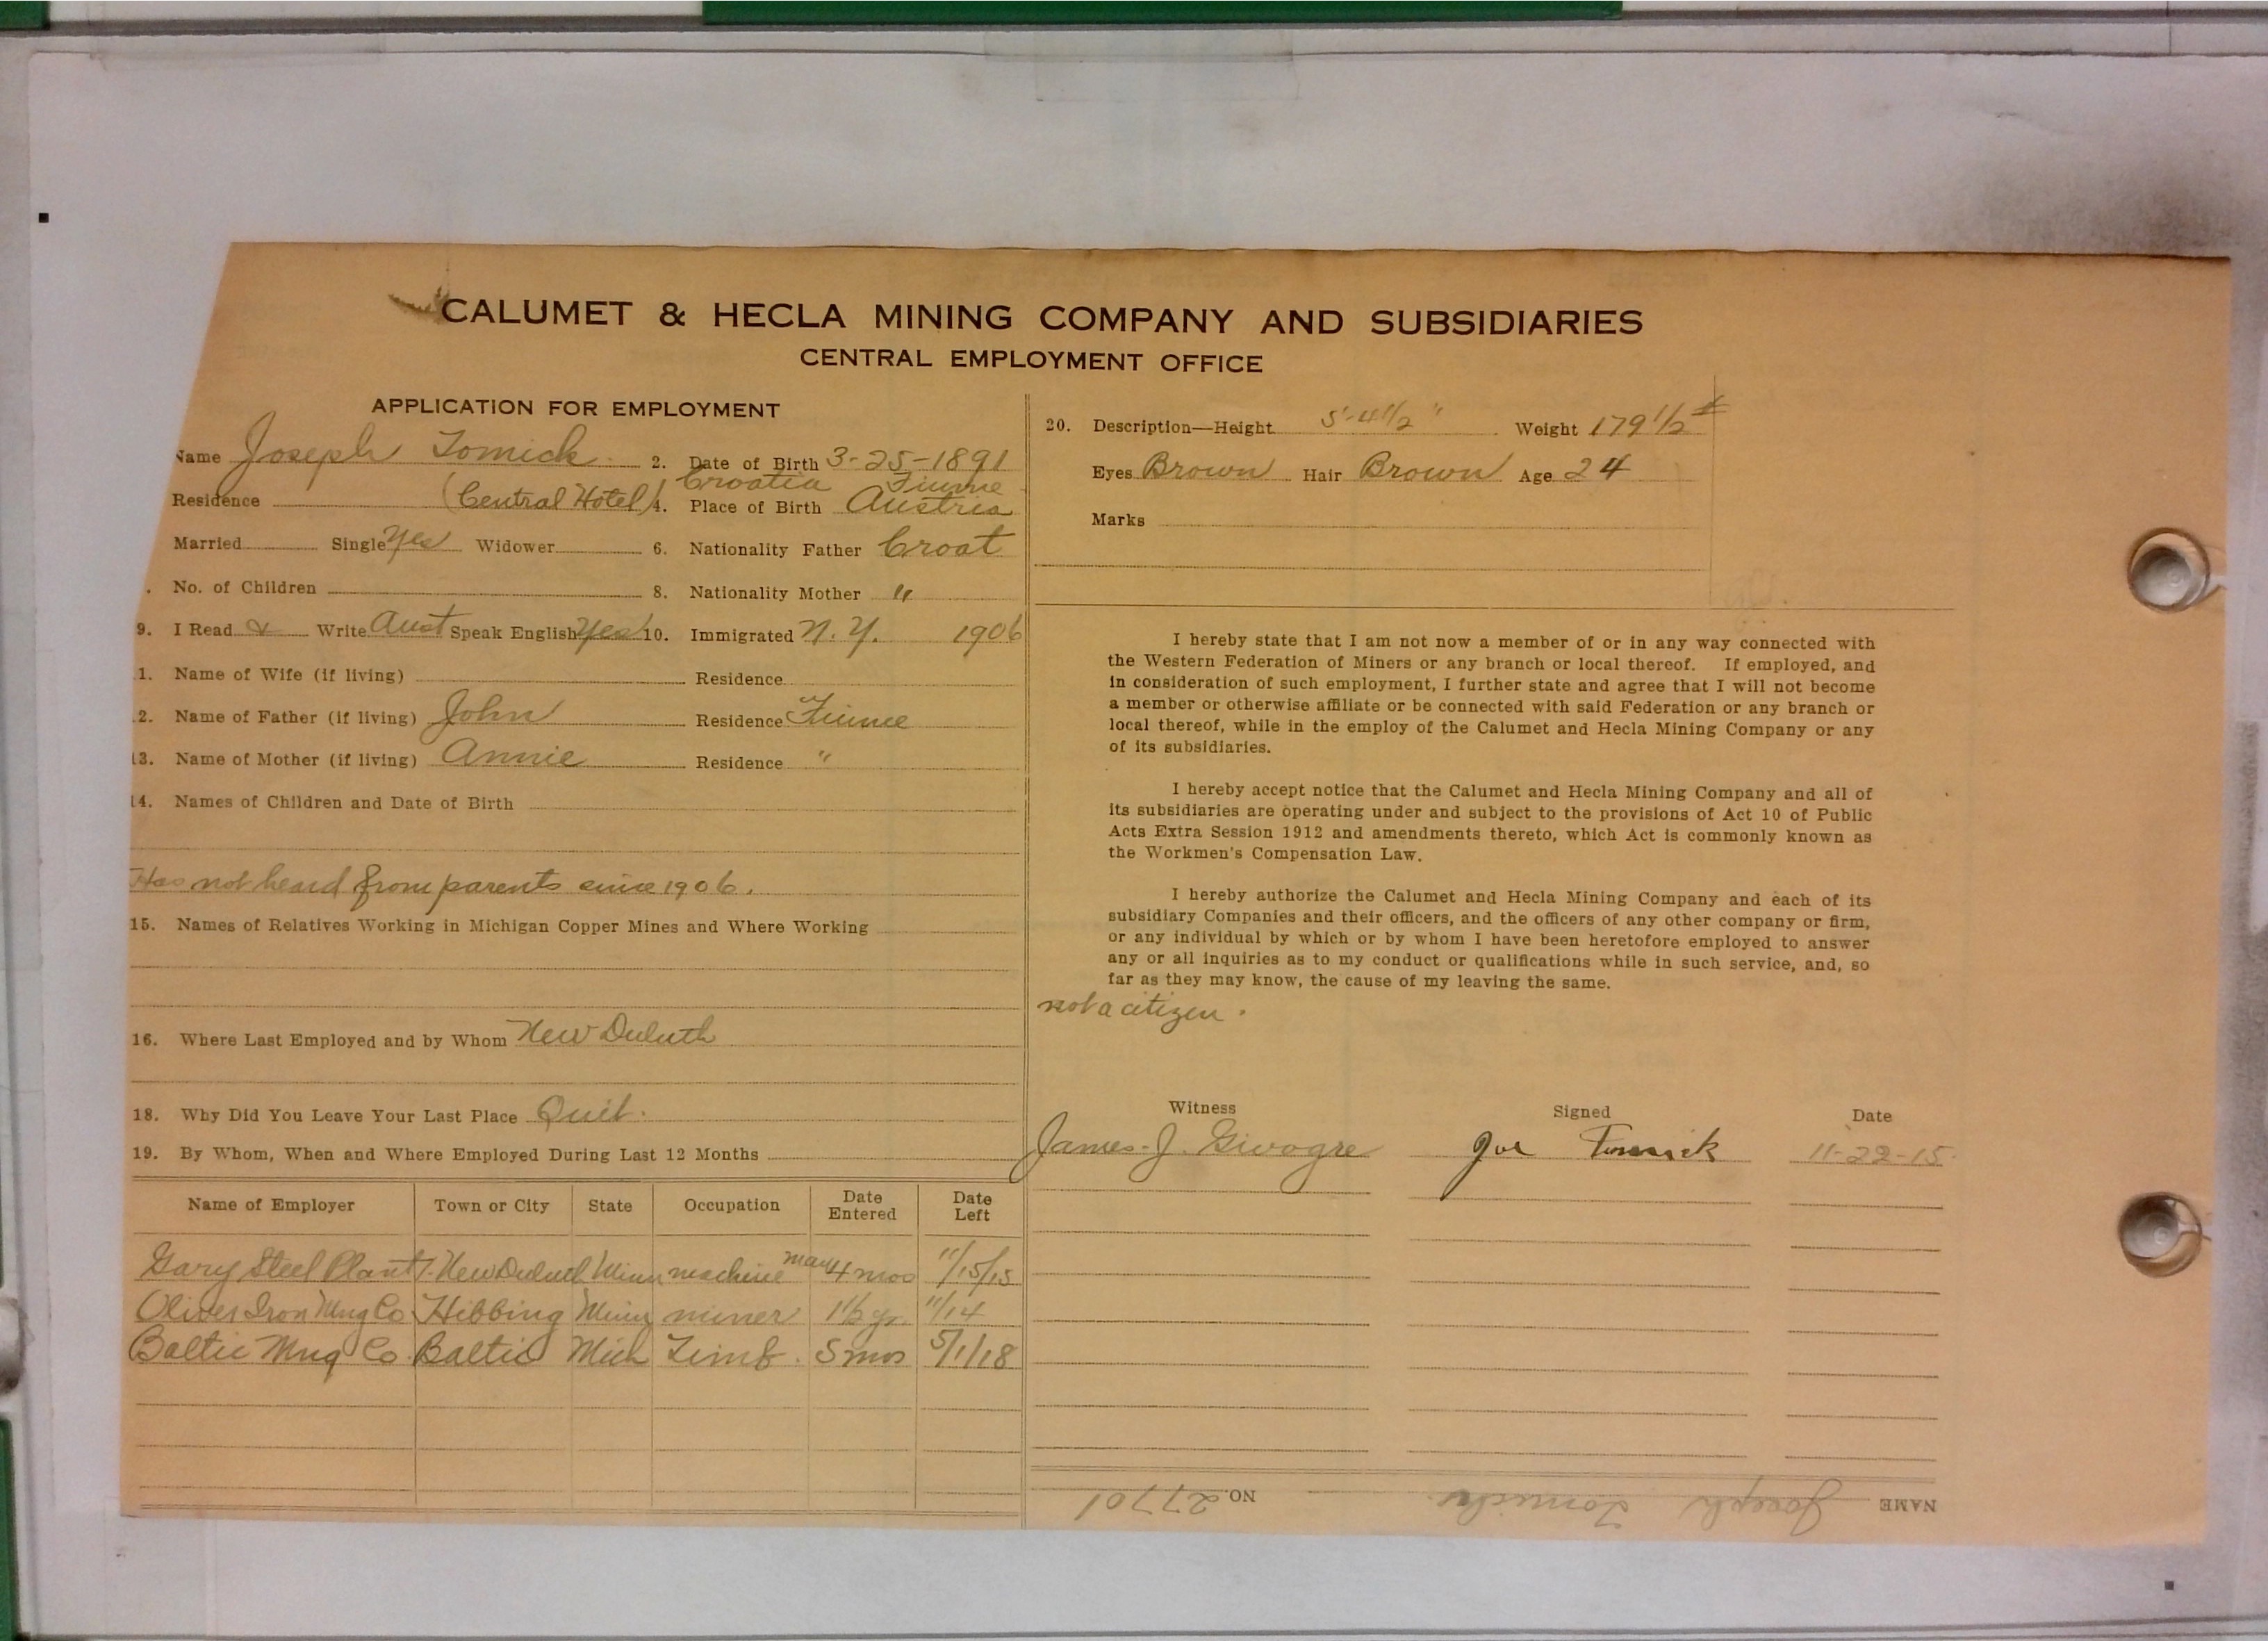 CALUMET & HECLA MINING COMPANY AND SUBSIDIARIES
CENTRAL EMPLOYMENT OFFICE
APPLICATION FOR EMPLOYMENT
Name Joseph Tomich 2. Date of Birth 3-25-1891
Croatia Fiume
Residence (Central Hotel) 4. Place of Birth Austria
Married Single Yes Widower 6. Nationality Father Croat
. No. of Children 8. Nationality Mother "
9. I Read & Write Aust Speak English Yes 10. Immigrated N.Y. 1906
1. Name of Wife (if living) Residence
2. Name of Father (if living) John Residence Fiume
13. Name of Mother (if living) Annie Residence "
14. Names of Children and Date of Birth
Has not heard from parents since 1906.
15. Names of Relatives Working in Michigan Copper Mines and Where Working
16. Where Last Employed and by Whom New Duluth
18. Why Did You Leave Your Last Place Quit.
19. By Whom, When and Where Employed During Last 12 Months
Name of Employer Town or City State Occupation Date Entered Date Left
Gary Steel Plant New Duluth Minn machine man 4 mos 11/15/15
Oliver Iron Mng Co Hibbing Minn miner 1 1/2 yr. 11/14
Baltic Mng Co. Baltic Mich Timb. 5 mos 5/1/18
20. Description—Height 5'-4 1/2" Weight 179 1/2 #
Eyes Brown Hair Brown Age 24
Marks
I hereby state that I am not now a member of or in any way connected with
the Western Federation of Miners or any branch or local thereof. If employed, and
in consideration of such employment, I further state and agree that I will not become
a member or otherwise affiliate or be connected with said Federation or any branch or
local thereof, while in the employ of the Calumet and Hecla Mining Company or any
of its subsidiaries.
I hereby accept notice that the Calumet and Hecla Mining Company and all of
its subsidiaries are operating under and subject to the provisions of Act 10 of Public
Acts Extra Session 1912 and amendments thereto, which Act is commonly known as
the Workmen's Compensation Law.
I hereby authorize the Calumet and Hecla Mining Company and each of its
subsidiary Companies and their officers, and the officers of any other company or firm,
or any individual by which or by whom I have been heretofore employed to answer
any or all inquiries as to my conduct or qualifications while in such service, and, so
far as they may know, the cause of my leaving the same.
not a citizen.
Witness Signed Date
James J. Givogre Joe 11-22-15
NAME Joseph Tomich NO. 27701